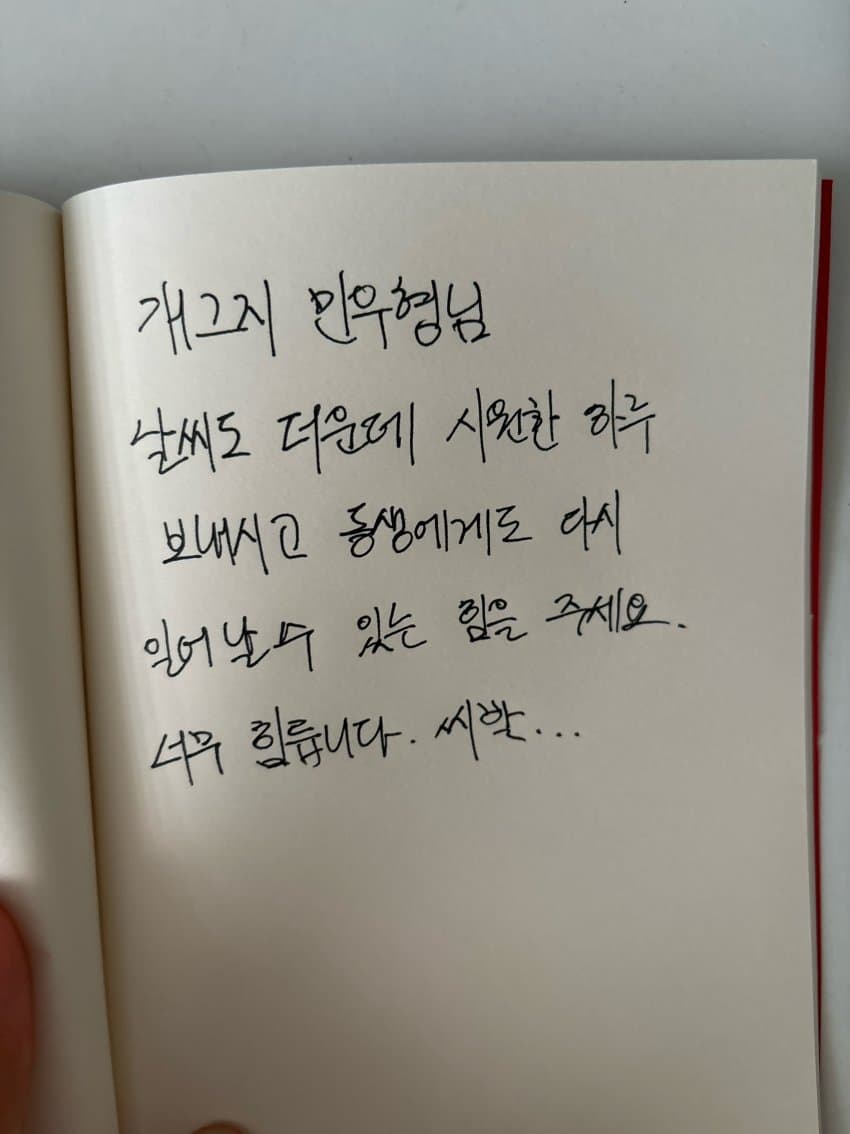 개그지 민우형님
날씨도 더운데 시원한 하루
보내시고 동생에게도 다시
일어날 수 있는 힘을 주세요.
너무 힘듭니다. 씨발...